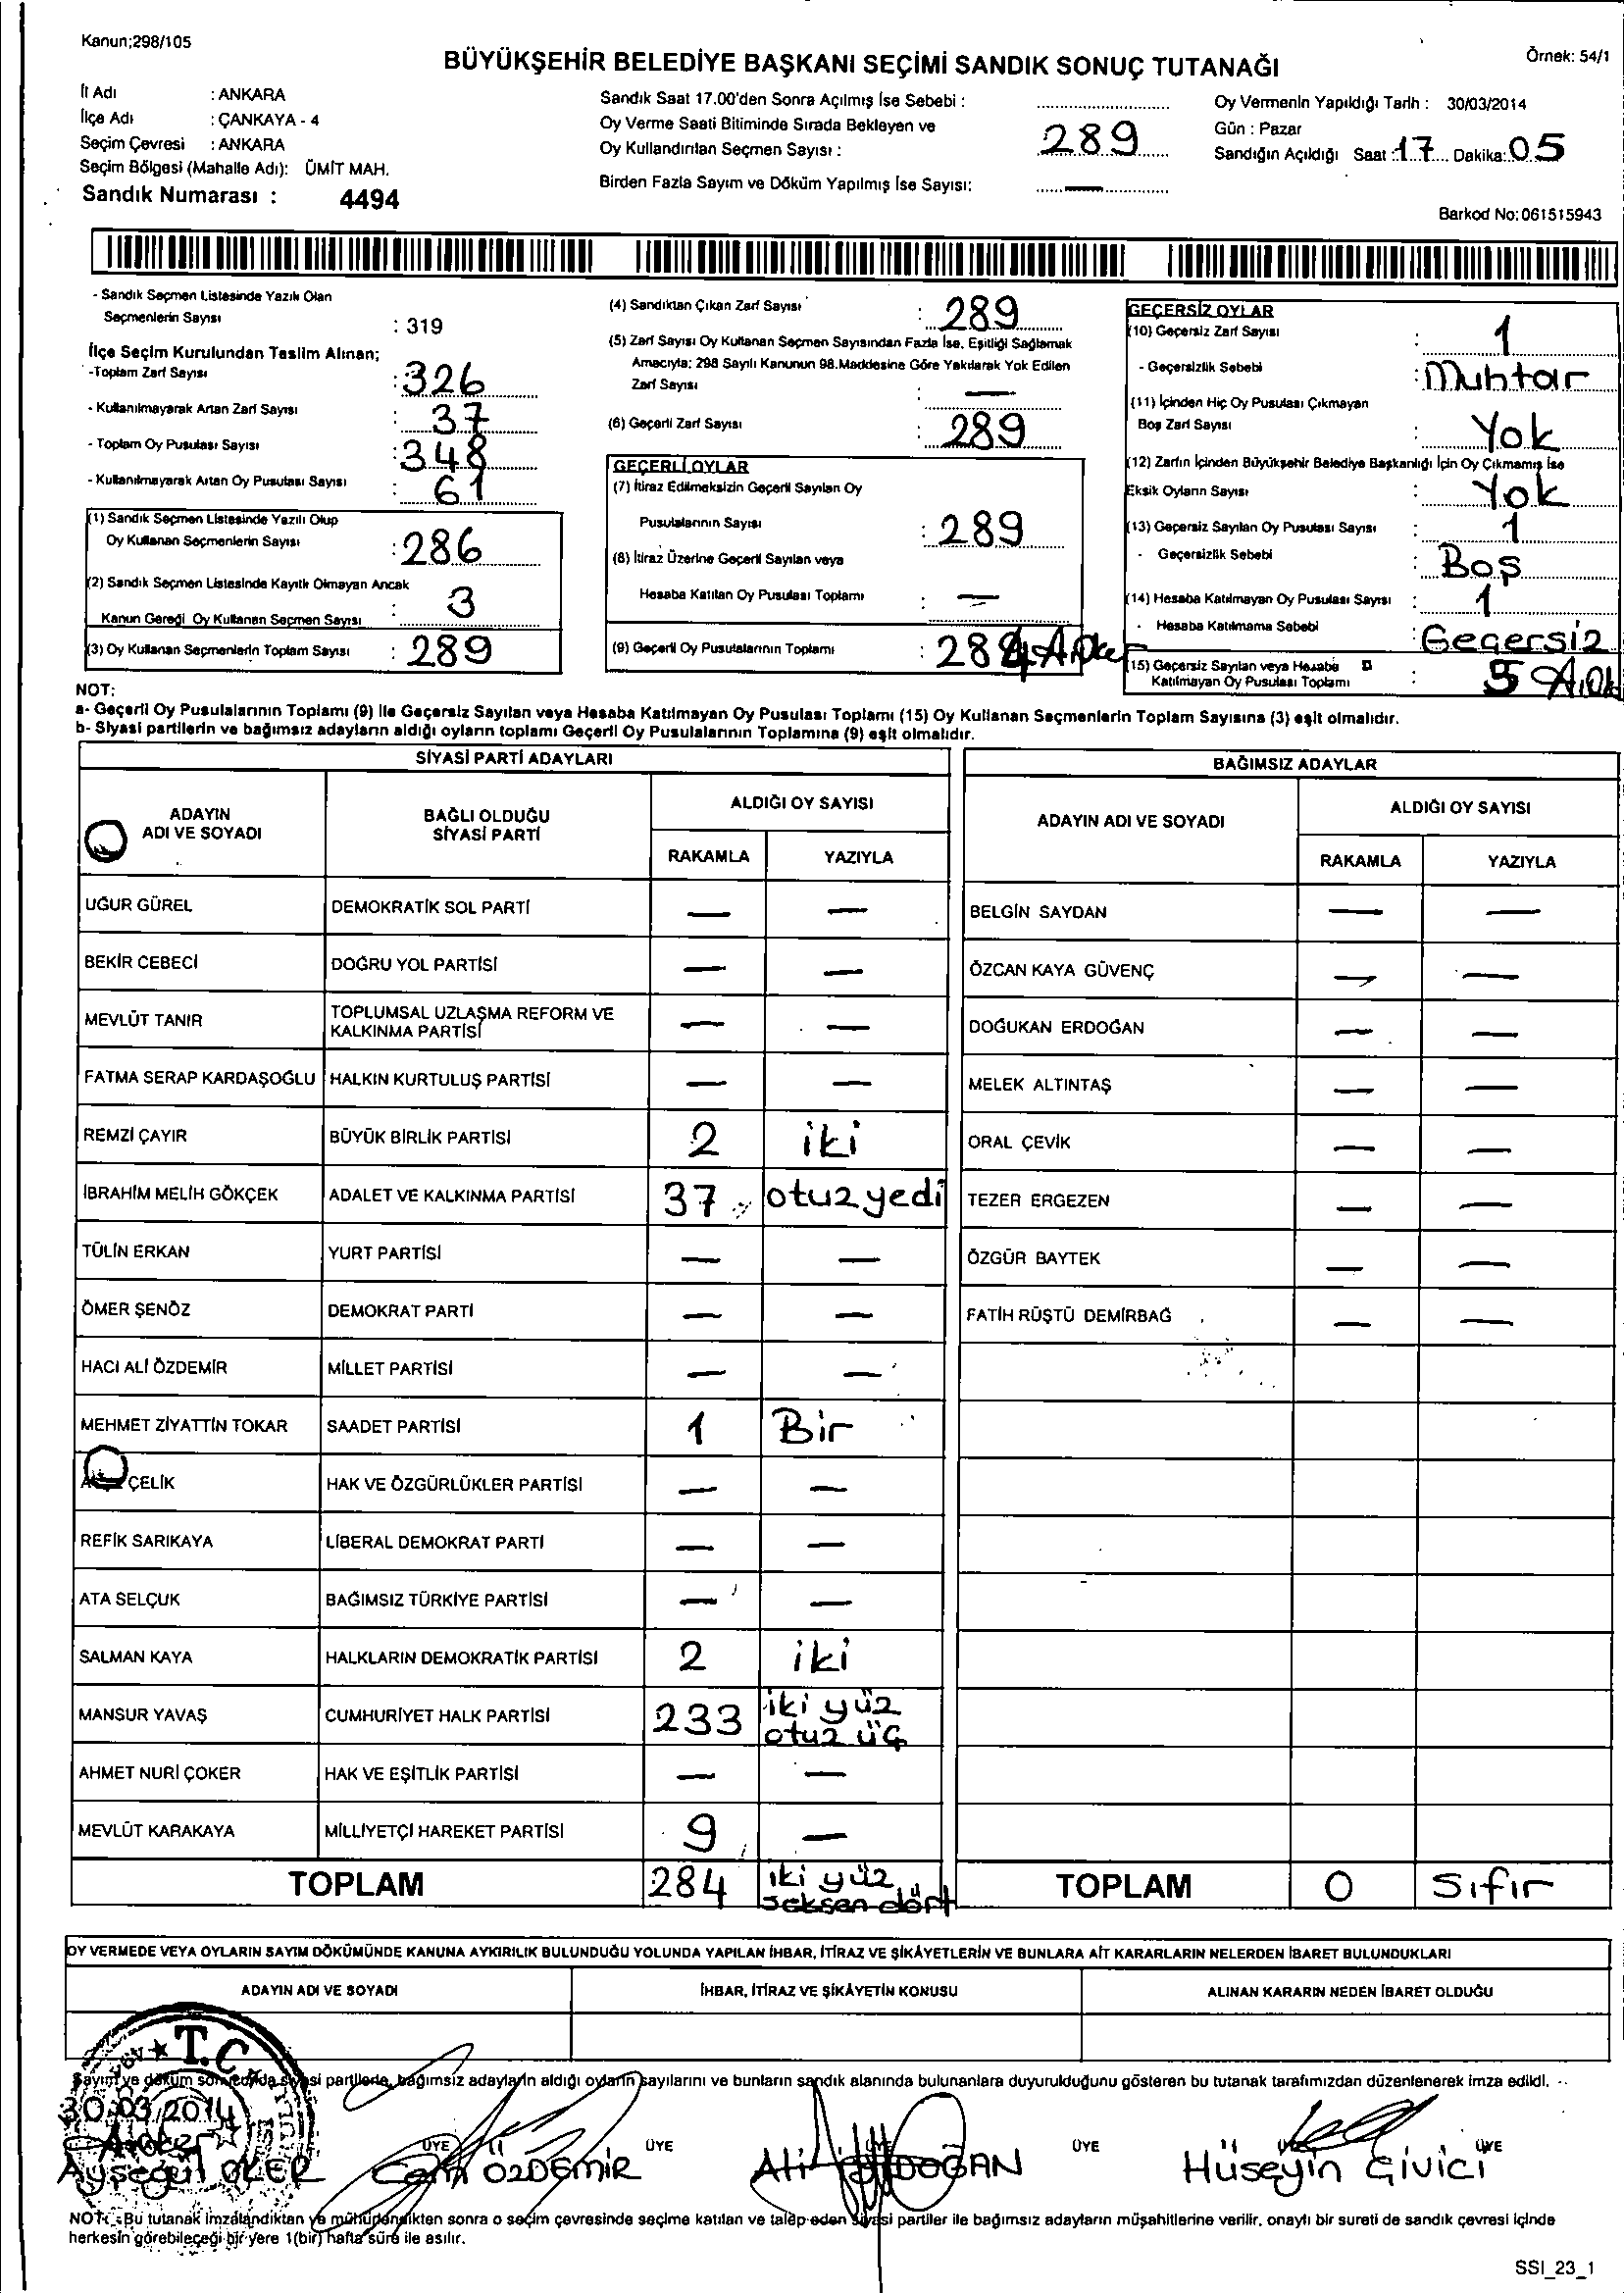 Kanun;298/105
BÜYÜKŞEHİR BELEDİYE BAŞKANI SEÇİMİ SANDIK SONUÇ TUTANAĞI
Örnek: 54/1
İl Adı : ANKARA
İlçe Adı : ÇANKAYA - 4
Seçim Çevresi : ANKARA
Seçim Bölgesi (Mahalle Adı): ÜMİT MAH.
Sandık Numarası : 4494
Sandık Saat 17.00'den Sonra Açılmış İse Sebebi :
Oy Verme Saati Bitiminde Sırada Bekleyen ve
Oy Kullandırılan Seçmen Sayısı : 289
Birden Fazla Sayım ve Döküm Yapılmış İse Sayısı: —
Oy Vermenin Yapıldığı Tarih : 30/03/2014
Gün : Pazar
Sandığın Açıldığı Saat : 17 Dakika: 05
Barkod No: 061515943
- Sandık Seçmen Listesinde Yazılı Olan
Seçmenlerin Sayısı : 319
İlçe Seçim Kurulundan Teslim Alınan;
-Toplam Zarf Sayısı : 326
- Kullanılmayarak Artan Zarf Sayısı : 37
- Toplam Oy Pusulası Sayısı : 348
- Kullanılmayarak Artan Oy Pusulası Sayısı : 61
(1) Sandık Seçmen Listesinde Yazılı Olup
Oy Kullanan Seçmenlerin Sayısı : 286
(2) Sandık Seçmen Listesinde Kayıtlı Olmayan Ancak
Kanun Gereği Oy Kullanan Seçmen Sayısı : 3
(3) Oy Kullanan Seçmenlerin Toplam Sayısı : 289
(4) Sandıktan Çıkan Zarf Sayısı : 289
(5) Zarf Sayısı Oy Kullanan Seçmen Sayısından Fazla İse, Eşitliği Sağlamak
Amacıyla; 298 Sayılı Kanunun 98.Maddesine Göre Yakılarak Yok Edilen
Zarf Sayısı : —
(6) Geçerli Zarf Sayısı : 289
GEÇERLİ OYLAR
(7) İtiraz Edilmeksizin Geçerli Sayılan Oy
Pusulalarının Sayısı : 289
(8) İtiraz Üzerine Geçerli Sayılan veya
Hesaba Katılan Oy Pusulası Toplamı : —
(9) Geçerli Oy Pusulalarının Toplamı : 284
GEÇERSİZ OYLAR
(10) Geçersiz Zarf Sayısı : 1
- Geçersizlik Sebebi : Muhtar
(11) İçinden Hiç Oy Pusulası Çıkmayan
Boş Zarf Sayısı : Yok
(12) Zarfın İçinden Büyükşehir Belediye Başkanlığı İçin Oy Çıkmamış İse
Eksik Oyların Sayısı : Yok
(13) Geçersiz Sayılan Oy Pusulası Sayısı : 1
- Geçersizlik Sebebi : Boş
(14) Hesaba Katılmayan Oy Pusulası Sayısı : 1
- Hesaba Katılmama Sebebi : Geçersiz
(15) Geçersiz Sayılan veya Hesaba
Katılmayan Oy Pusulası Toplamı : 5
NOT:
a- Geçerli Oy Pusulalarının Toplamı (9) ile Geçersiz Sayılan veya Hesaba Katılmayan Oy Pusulası Toplamı (15) Oy Kullanan Seçmenlerin Toplam Sayısına (3) eşit olmalıdır.
b- Siyasi partilerin ve bağımsız adayların aldığı oyların toplamı Geçerli Oy Pusulalarının Toplamına (9) eşit olmalıdır.
SİYASİ PARTİ ADAYLARI
ADAYIN ADI VE SOYADI
BAĞLI OLDUĞU SİYASİ PARTİ
ALDIĞI OY SAYISI
RAKAMLA YAZIYLA
UĞUR GÜREL DEMOKRATİK SOL PARTİ — —
BEKİR CEBECİ DOĞRU YOL PARTİSİ — —
MEVLÜT TANIR TOPLUMSAL UZLAŞMA REFORM VE KALKINMA PARTİSİ — —
FATMA SERAP KARDAŞOĞLU HALKIN KURTULUŞ PARTİSİ — —
REMZİ ÇAYIR BÜYÜK BİRLİK PARTİSİ 2 iki
İBRAHİM MELİH GÖKÇEK ADALET VE KALKINMA PARTİSİ 37 otuz yedi
TÜLİN ERKAN YURT PARTİSİ — —
ÖMER ŞENÖZ DEMOKRAT PARTİ — —
HACI ALİ ÖZDEMİR MİLLET PARTİSİ — —
MEHMET ZİYATTİN TOKAR SAADET PARTİSİ 1 Bir
ÇELİK HAK VE ÖZGÜRLÜKLER PARTİSİ — —
REFİK SARIKAYA LİBERAL DEMOKRAT PARTİ — —
ATA SELÇUK BAĞIMSIZ TÜRKİYE PARTİSİ — —
SALMAN KAYA HALKLARIN DEMOKRATİK PARTİSİ 2 iki
MANSUR YAVAŞ CUMHURİYET HALK PARTİSİ 233 iki yüz otuz üç
AHMET NURİ ÇOKER HAK VE EŞİTLİK PARTİSİ — —
MEVLÜT KARAKAYA MİLLİYETÇİ HAREKET PARTİSİ 9 —
TOPLAM 284 iki yüz seksen dört
BAĞIMSIZ ADAYLAR
ADAYIN ADI VE SOYADI
ALDIĞI OY SAYISI
RAKAMLA YAZIYLA
BELGİN SAYDAN — —
ÖZCAN KAYA GÜVENÇ — —
DOĞUKAN ERDOĞAN — —
MELEK ALTINTAŞ — —
ORAL ÇEVİK — —
TEZER ERGEZEN — —
ÖZGÜR BAYTEK — —
FATİH RÜŞTÜ DEMİRBAĞ — —
TOPLAM 0 Sıfır
OY VERMEDE VEYA OYLARIN SAYIM DÖKÜMÜNDE KANUNA AYKIRILIK BULUNDUĞU YOLUNDA YAPILAN İHBAR, İTİRAZ VE ŞİKÂYETLERİN VE BUNLARA AİT KARARLARIN NELERDEN İBARET BULUNDUKLARI
ADAYIN ADI VE SOYADI
İHBAR, İTİRAZ VE ŞİKÂYETİN KONUSU
ALINAN KARARIN NEDEN İBARET OLDUĞU
T.C.
Sayım ve döküm sonucunda siyasi partilerle, bağımsız adayların aldığı oyların sayılarını ve bunların sandık alanında bulunanlara duyurulduğunu gösteren bu tutanak tarafımızdan düzenlenerek imza edildi.
30.03.2014
ÜYE ÜYE ÜYE ÜYE
Ayşegül Cem ÖZDEMİR Ali Hüseyin Givici
NOT: -Bu tutanak imzalandıktan ve mühürlendikten sonra o seçim çevresinde seçime katılan ve talep eden siyasi partiler ile bağımsız adayların müşahitlerine verilir, onaylı bir sureti de sandık çevresi içinde
herkesin görebileceği bir yere 1(bir) hafta süre ile asılır.
SSI_23_1